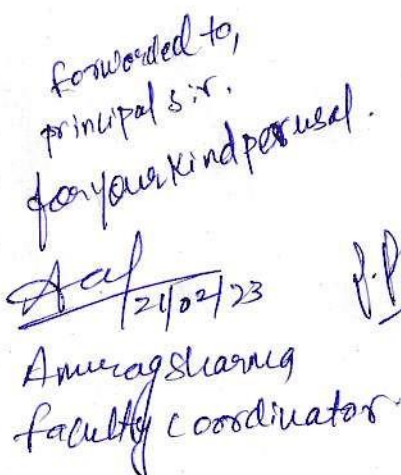 forwarded to,
principal sir.
for your kind perusal.
21/02/23
Anurag sharma
faculty coordinator